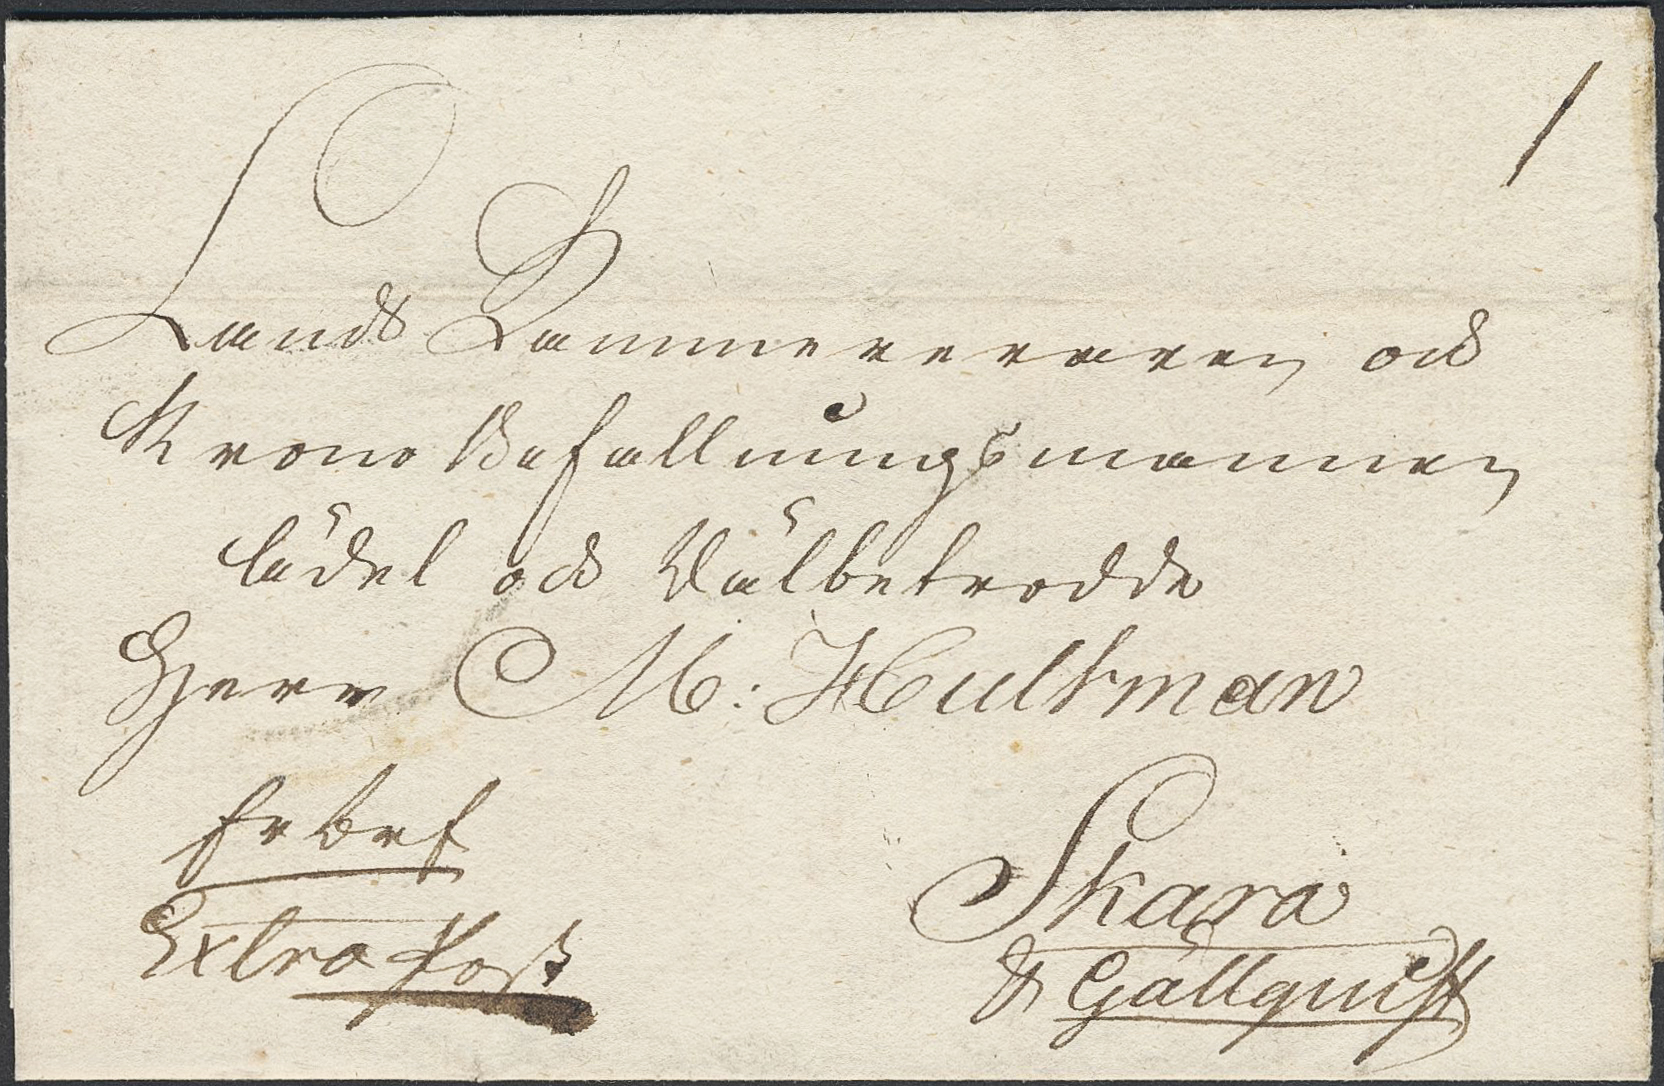 1
Lands Kammereraren och
Krono Befallningsmannen
ädel och Välbetrodde
Herr M: Hultman
Frbrf
Skara
Extra Post
& Gällquist